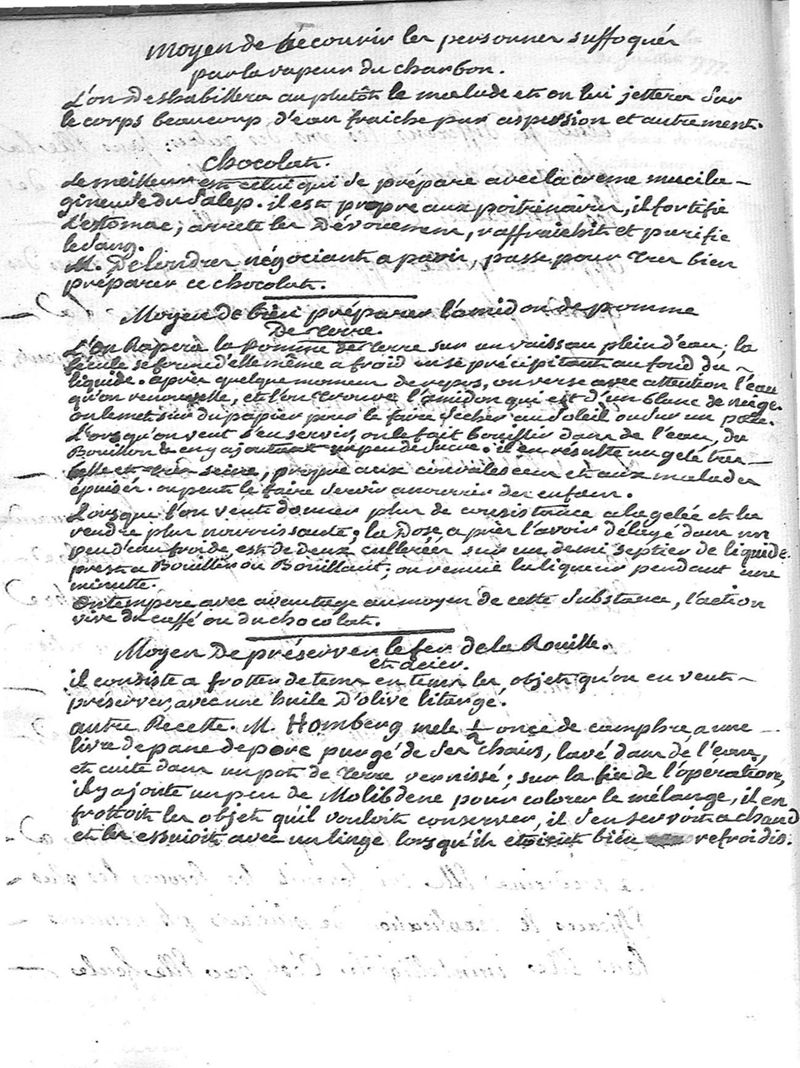 Moyen de secourir les personnes suffoqués
par la vapeur du charbon.
L'on Deshabillera au plutôt le malade et on lui jettera sur
le corps beaucoup d'eau fraiche par aspersion et autrement.
Chocolat.
Le meilleur est celui qui se prépare avec la crême mucila-
gineuse du Salep. il est propre aux poitrinaires, il fortifie
L'estomac, arrete les Dévoiemens, raffraichit et purifie
le Sang.
M. Delondres négociant a paris, passe pour tres bien
préparer ce chocolat.
Moyen de bien préparer l'amidon de pomme
De terre.
L'on Rapera la pomme de terre sur un vaisseau plein d'eau; la
fécule se forme d'elle même a froid en se précipitant au fond du
liquide. après quelque momens de repos, on verse avec attention l'eau
qu'on renouvelle, et l'on trouve l'amidon qui est d'un blanc de neige.
on le met sur du papier pour le faire sécher au Soleil ou sur un poele.
Lorsqu'on veut s'en servir, on le fait bouillir dans de l'eau, du
Bouillon & en y ajoutant un peu de Sucre. il en résulte un gelé tres
belle et tres saine, propre aux convalescens et aux malades
épuisés. on peut le faire servir a nourrir des enfans.
Lorsque l'on veut donner plus de consistance a la gelée et la
rendre plus nourrissante; la Dose, après l'avoir délayé dans un
peu d'eau froide, est de deux cullerées sur un demi septier de liquide
prest a Bouillir ou Bouillant; on remue la liqueur pendant une
minute.
On tempere avec avantage au moyen de cette substance, l'action
vive du caffé ou du chocolat.
Moyen De préserver le fer de la Rouille.
et acier.
il consiste a frotter de tems en tems les objets qu'on en veut
préserver, avec une huile D'olive litargé.
autre Recette. M. Homberg mele ½ onçe de camphre a une
livre de pane de porc purgé de ses chairs, lavé dans de l'eau,
et cuite dans un pot de terre vernissé; sur la fin de l'opération,
il y ajoute un peu de Molibdene pour colorer le mélange, il en
frottoit les objets qu'il vouloit conserver, il s'en servoit a chaud
et les essuioit avec un linge lorsqu'ils etoient bien refroidis.